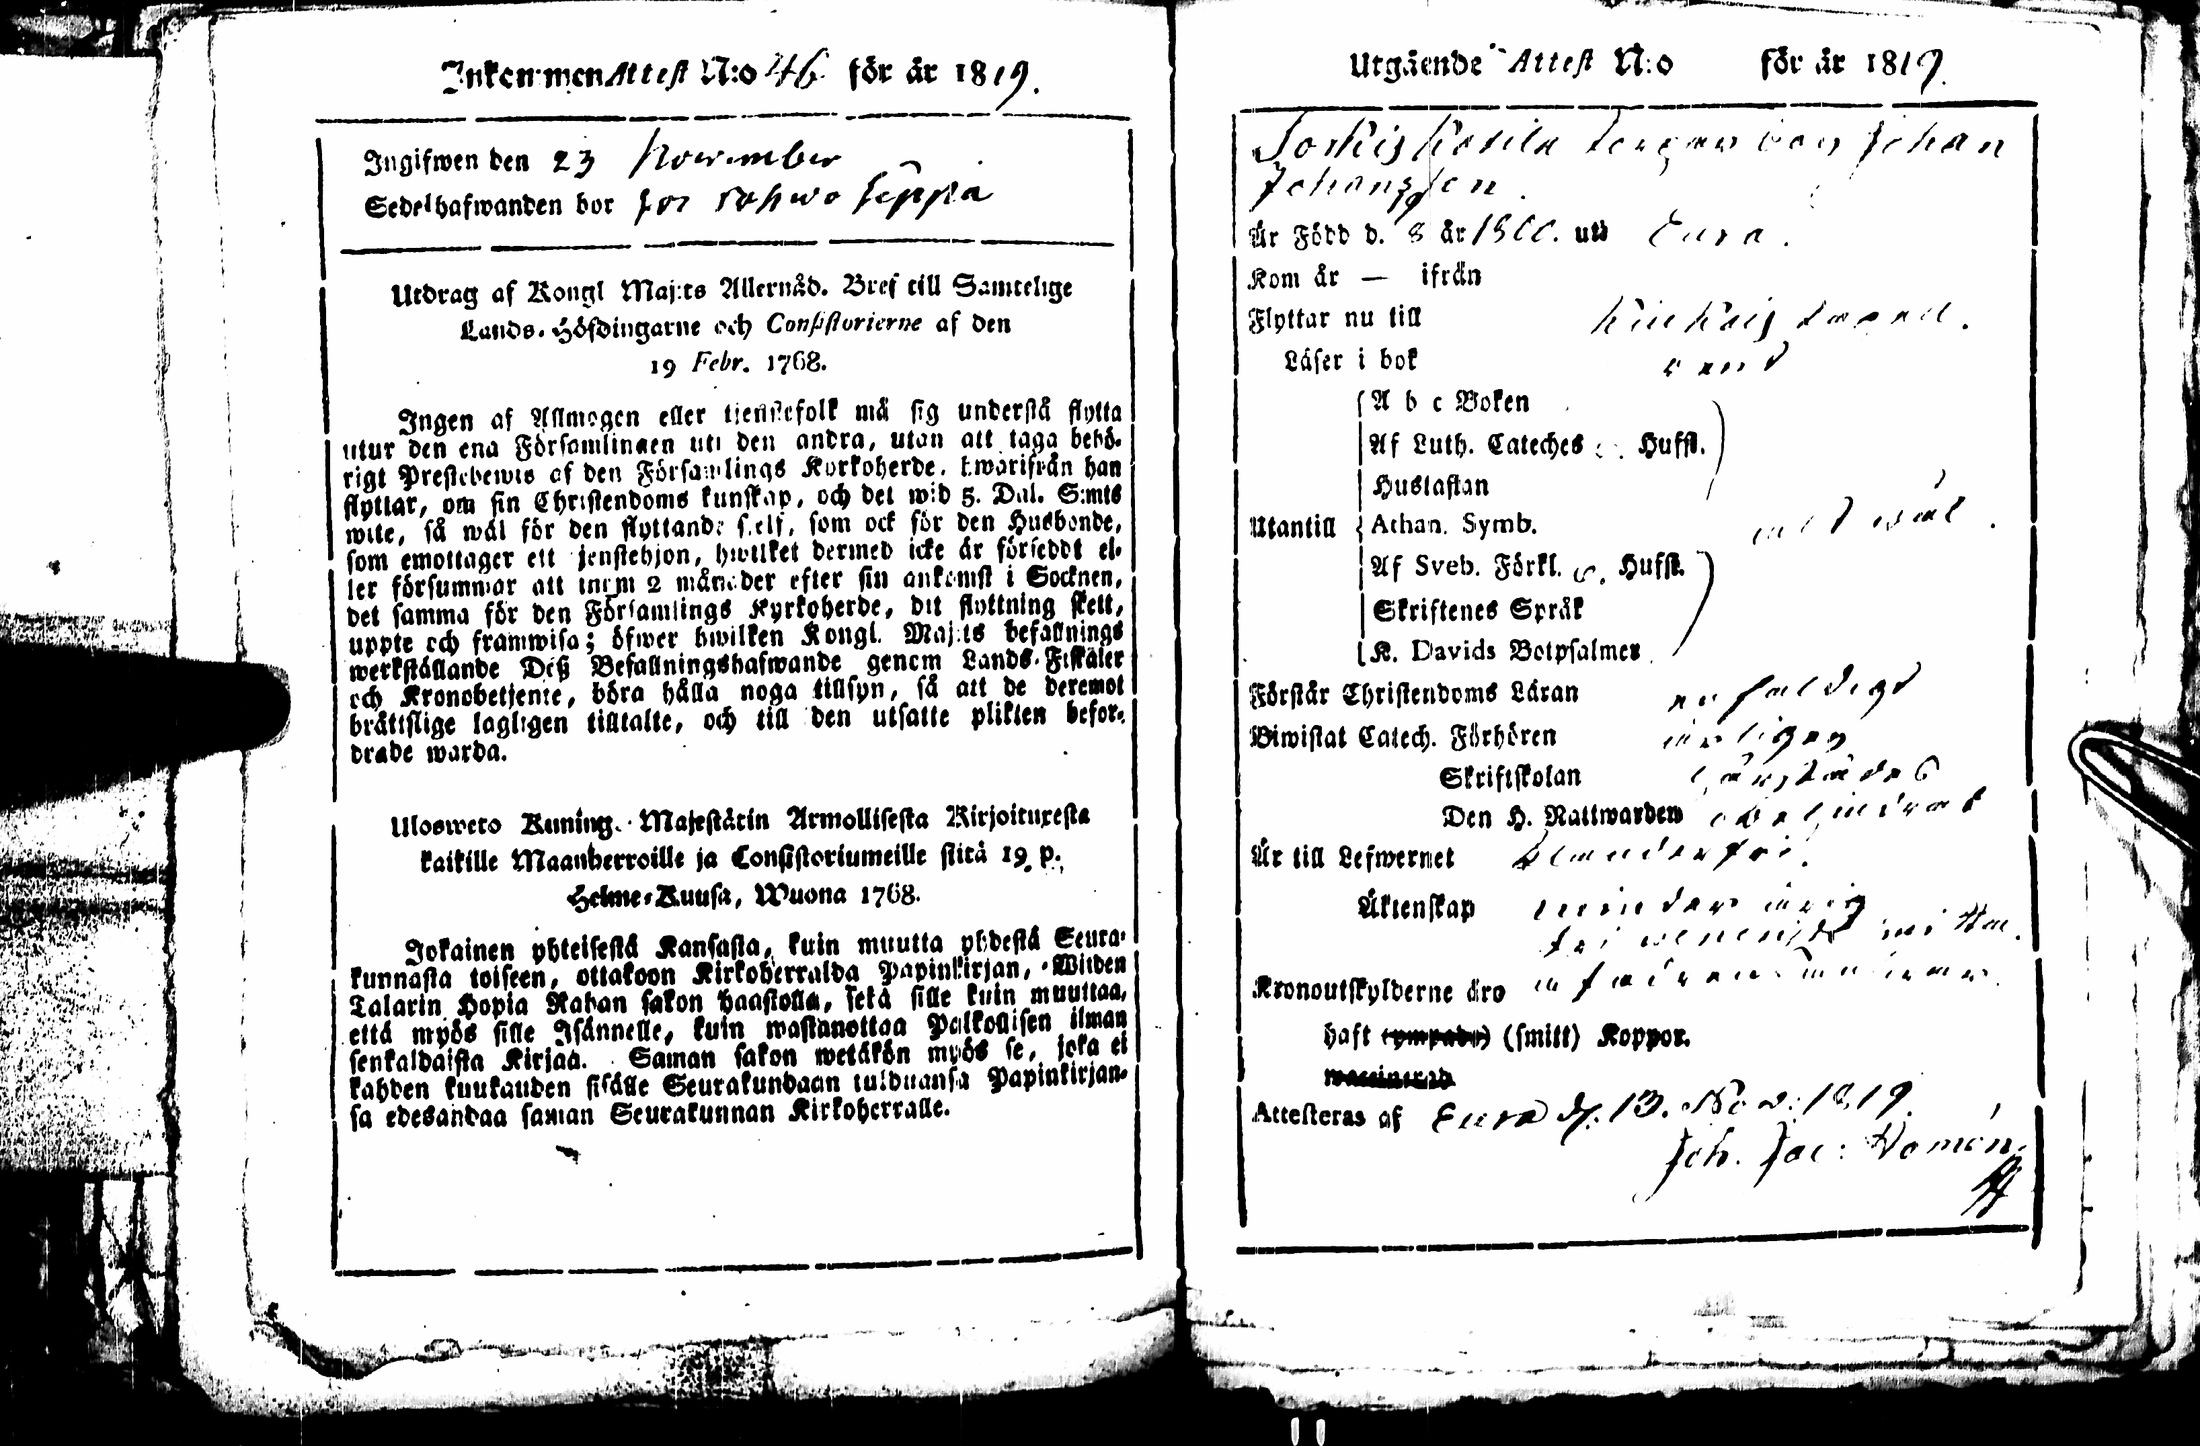 Inkommen Attest N:o 46 för år 1819.
Ingifwen den 23 November
Sedelhafwanden bor hos Rohwo Seppä
Utdrag af Kongl Maj:ts Allernåd. Bref till Samtelige
Lands-Höfdingarne och Consistorierne af den
19 Febr. 1768.
Ingen af Allmogen eller tjenstefolk må sig understå flytta
utur den ena Församlingen uti den andra, utan att taga behö-
rigt Prestebewis af den Församlings Kyrkoherde, hwarifrån han
flyttar, om sin Christendoms kunskap, och det wid 5. Dal. S:mts
wite, så wäl för den flyttande sjelf, som ock för den Husbonde,
som emottager ett tjenstehjon, hwilket dermed icke är försedt el-
ler försummar att inom 2 månader efter sin ankomst i Socknen,
det samma för den Församlings Kyrkoherde, dit flyttning skett,
uppte och framwisa; öfwer hwilken Kongl. Maj:ts befallnings
werkställande Deß Befallningshafwande genom Lands-Fiskaler
och Kronobetjente, böra hålla noga tillsyn, så att de deremot
brättslige lagligen tilltalte, och till den utsatte plikten befor-
drade warda.
Ulosweto Kuning. Majestätin Armollisesta Kirjoituxesta
kaikille Maanherroille ja Consistoriumeille siitä 19 p.
Helme-Kuusa, Wuona 1768.
Jokainen yhteisestä Kansasta, kuin muutta yhdestä Seura-
kunnasta toiseen, ottakoon Kirkoherralda Papinkirjan, Wiiden
Talarin Hopia Rahan sakon haastolla, sekä sille kuin muuttaa,
että myös sille Isännelle, kuin wastanottaa Palkollisen ilman
senkaldaista Kirjaa. Saman sakon wetäkön myös se, joka ei
kahden kuukauden sisälle Seurakundaan tulduansa Papinkirjan-
sa edesandaa saman Seurakunnan Kirkoherralle.
Utgående Attest N:o för år 1819.
Johan
Johansson
Är Född d. 8 år 1800. uti Eura.
Kom år — ifrån
Flyttar nu till
Läser i bok rent
A b c Boken
Af Luth. Cateches Hufst.
Hustaflan
Utantill Athan. Symb. allt wäl.
Af Sveb. Förkl. Hufst.
Skriftenes Språk
K. Davids Botpsalmer
Förstår Christendoms Läran enfaldigt
Biwistat Catech. Förhören årligen
Skriftskolan
Den H. Nattwarden obehindrat
Är till Lefwernet
Äktenskap minderårig
Kronoutskylderne äro
haft (smitt) Koppor.
Attesteras af Eura d. 13. Nov: 1819.
Joh. Jac: